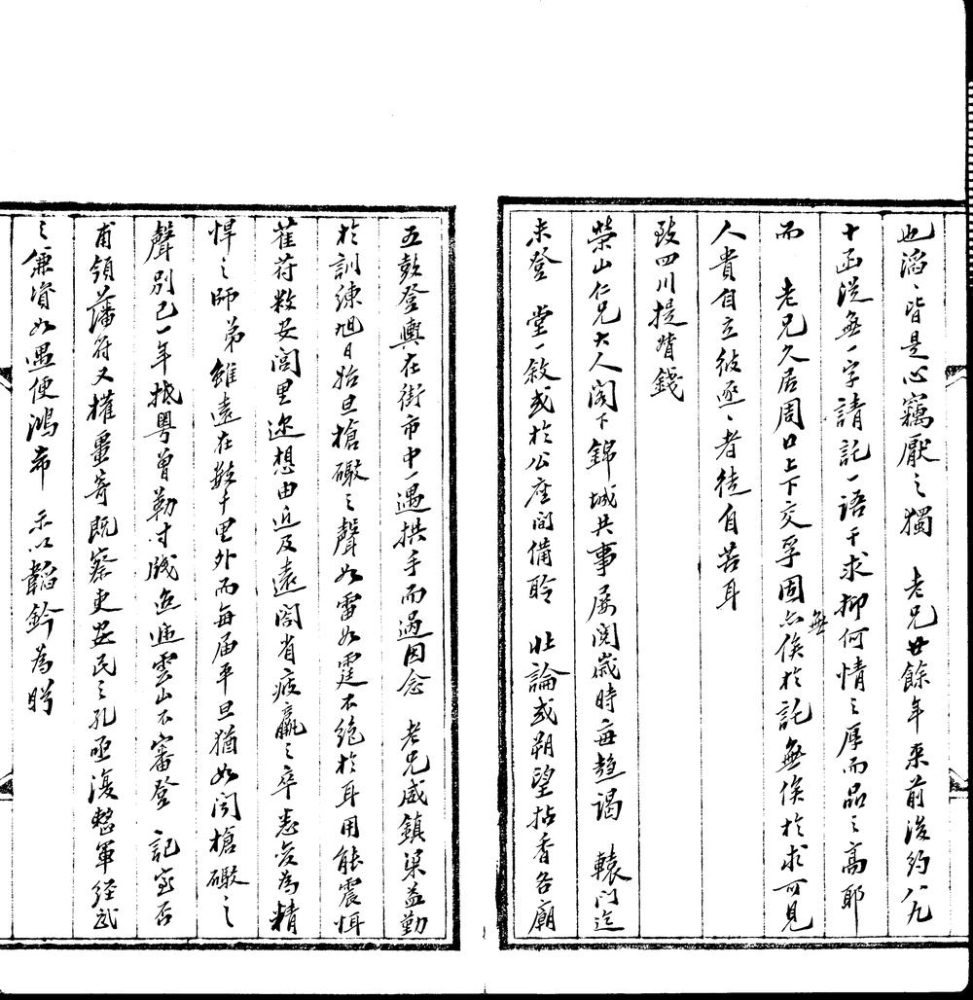 也滔滔皆是心竊厭之獨 老兄廿餘年來前後約八九
十函從無一字請託一語干求抑何情之厚而品之高耶
而 老兄久居周口上下交孚固亦無俟於託無俟於求可見
人貴自立彼逐逐者徒自苦耳
致四川提督錢
榮山仁兄大人閣下錦城共事屢閱歲時每趨謁 轅門迄
未登 堂一敘或於公座間備聆 壯論或朔望拈香各廟
五鼓登輿在街市中一遇拱手而過因念 老兄威鎮梁益勤
於訓練旭日始旦槍礮之聲如雷如霆不絕於耳用能震慴
萑苻救安閭里邇想由近及遠閤省疲羸之卒悉變為精
悍之師弟雖遠在數千里外而每届平旦猶如聞槍礮之
聲別已一年抵粵曾勒寸牋迢遞雲山不審登 記室否
甫領藩符又權畺寄既察吏安民之孔亟復整軍經武
之兼資如遇便鴻希 示以韜鈐為盼